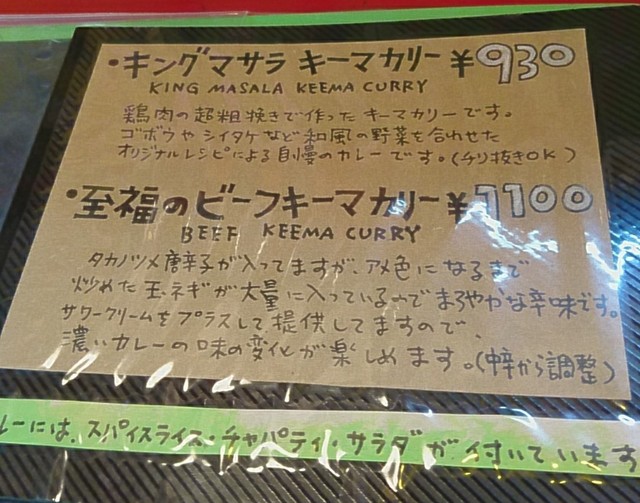 ・キングマサラ キーマカリー ¥930
KING MASALA KEEMA CURRY
鶏肉の超粗挽きで作ったキーマカリーです。
ゴボウやシイタケなど和風の野菜を合わせた
オリジナルレシピによる自慢のカレーです。(チリ抜きOK)
・至福のビーフキーマカリー ¥1100
BEEF KEEMA CURRY
タカノツメ唐辛子が入ってますが、アメ色になるまで
炒めた玉ネギが大量に入っているのでまろやかな辛味です。
サワークリームをプラスして提供してますので、
濃いカレーの味の変化が楽しめます。(中辛から調整)
レーには、スパイスライス・チャパティ・サラダが付いています